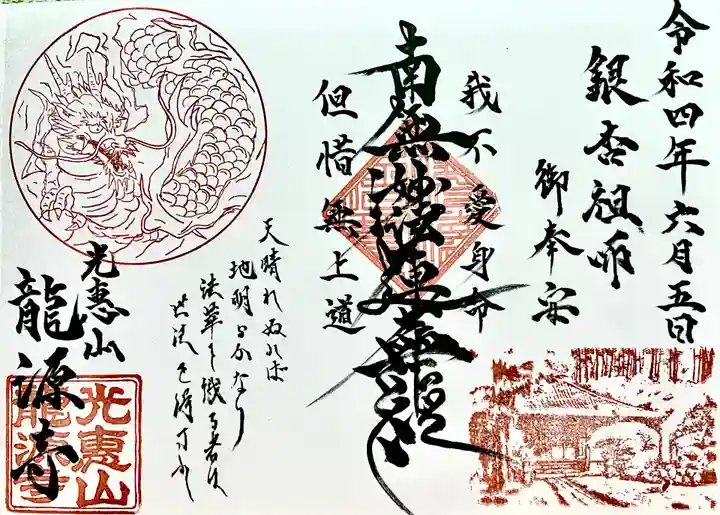 令和四年六月五日
銀杏祖師
御奉安
我不愛身命
南無妙法蓮華経
但惜無上道
天晴れぬれば
地明らかなり
法華を識る者は
世法を得
光恵山
龍源寺
光恵山
龍源寺